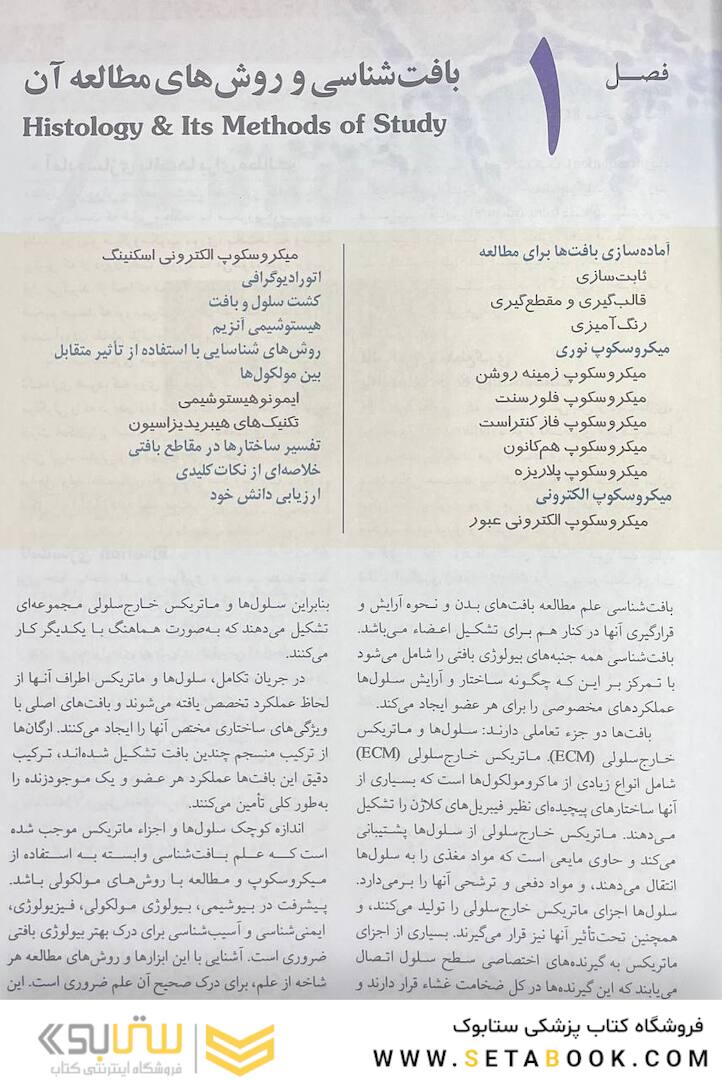 فصل ۱
بافت‌شناسی و روش‌های مطالعه آن
Histology & Its Methods of Study
آماده‌سازی بافت‌ها برای مطالعه
ثابت‌سازی
قالب‌گیری و مقطع‌گیری
رنگ‌آمیزی
میکروسکوپ نوری
میکروسکوپ زمینه روشن
میکروسکوپ فلورسنت
میکروسکوپ فازکنتراست
میکروسکوپ هم‌کانون
میکروسکوپ پلاریزه
میکروسکوپ الکترونی
میکروسکوپ الکترونی عبور
میکروسکوپ الکترونی اسکنینگ
اتورادیوگرافی
کشت سلول و بافت
هیستوشیمی آنزیم
روش‌های شناسایی با استفاده از تأثیر متقابل
بین مولکول‌ها
ایمونوهیستوشیمی
تکنیک‌های هیبریدیزاسیون
تفسیر ساختارها در مقاطع بافتی
خلاصه‌ای از نکات کلیدی
ارزیابی دانش خود
بافت‌شناسی علم مطالعه بافت‌های بدن و نحوه آرایش و
قرارگیری آنها در کنار هم برای تشکیل اعضاء می‌باشد.
بافت‌شناسی همه جنبه‌های بیولوژی بافتی را شامل می‌شود
با تمرکز بر این که چگونه ساختار و آرایش سلول‌ها
عملکردهای مخصوصی را برای هر عضو ایجاد می‌کند.
بافت‌ها دو جزء تعاملی دارند: سلول‌ها و ماتریکس
خارج‌سلولی (ECM). ماتریکس خارج‌سلولی (ECM)
شامل انواع زیادی از ماکرومولکول‌ها است که بسیاری از
آنها ساختارهای پیچیده‌ای نظیر فیبریل‌های کلاژن را تشکیل
می‌دهند. ماتریکس خارج‌سلولی از سلول‌ها پشتیبانی
می‌کند و حاوی مایعی است که مواد مغذی را به سلول‌ها
انتقال می‌دهند، و مواد دفعی و ترشحی آنها را برمی‌دارد.
سلول‌ها اجزای ماتریکس خارج‌سلولی را تولید می‌کنند، و
همچنین تحت‌تأثیر آنها نیز قرار می‌گیرند. بسیاری از اجزای
ماتریکس به گیرنده‌های اختصاصی سطح سلول اتصال
می‌یابند که این گیرنده‌ها در کل ضخامت غشاء قرار دارند و
بنابراین سلول‌ها و ماتریکس خارج‌سلولی مجموعه‌ای
تشکیل می‌دهند که به‌صورت هماهنگ با یکدیگر کار
می‌کنند.
در جریان تکامل، سلول‌ها و ماتریکس اطراف آنها از
لحاظ عملکرد تخصص یافته می‌شوند و بافت‌های اصلی با
ویژگی‌های ساختاری مختص آنها را ایجاد می‌کنند. ارگان‌ها
از ترکیب منسجم چندین بافت تشکیل شده‌اند، ترکیب
دقیق این بافت‌ها عملکرد هر عضو و یک موجودزنده را
به‌طور کلی تأمین می‌کنند.
اندازه کوچک سلول‌ها و اجزاء ماتریکس موجب شده
است که علم بافت‌شناسی وابسته به استفاده از
میکروسکوپ و مطالعه با روش‌های مولکولی باشد.
پیشرفت در بیوشیمی، بیولوژی مولکولی، فیزیولوژی،
ایمنی‌شناسی و آسیب‌شناسی برای درک بهتر بیولوژی بافتی
ضروری است. آشنایی با این ابزارها و روش‌های مطالعه هر
شاخه از علم، برای درک صحیح آن علم ضروری است. این
فروشگاه کتاب پزشکی ستابوک
WWW.SETABOOK.COM
ستابوک
فروشگاه اینترنتی کتاب